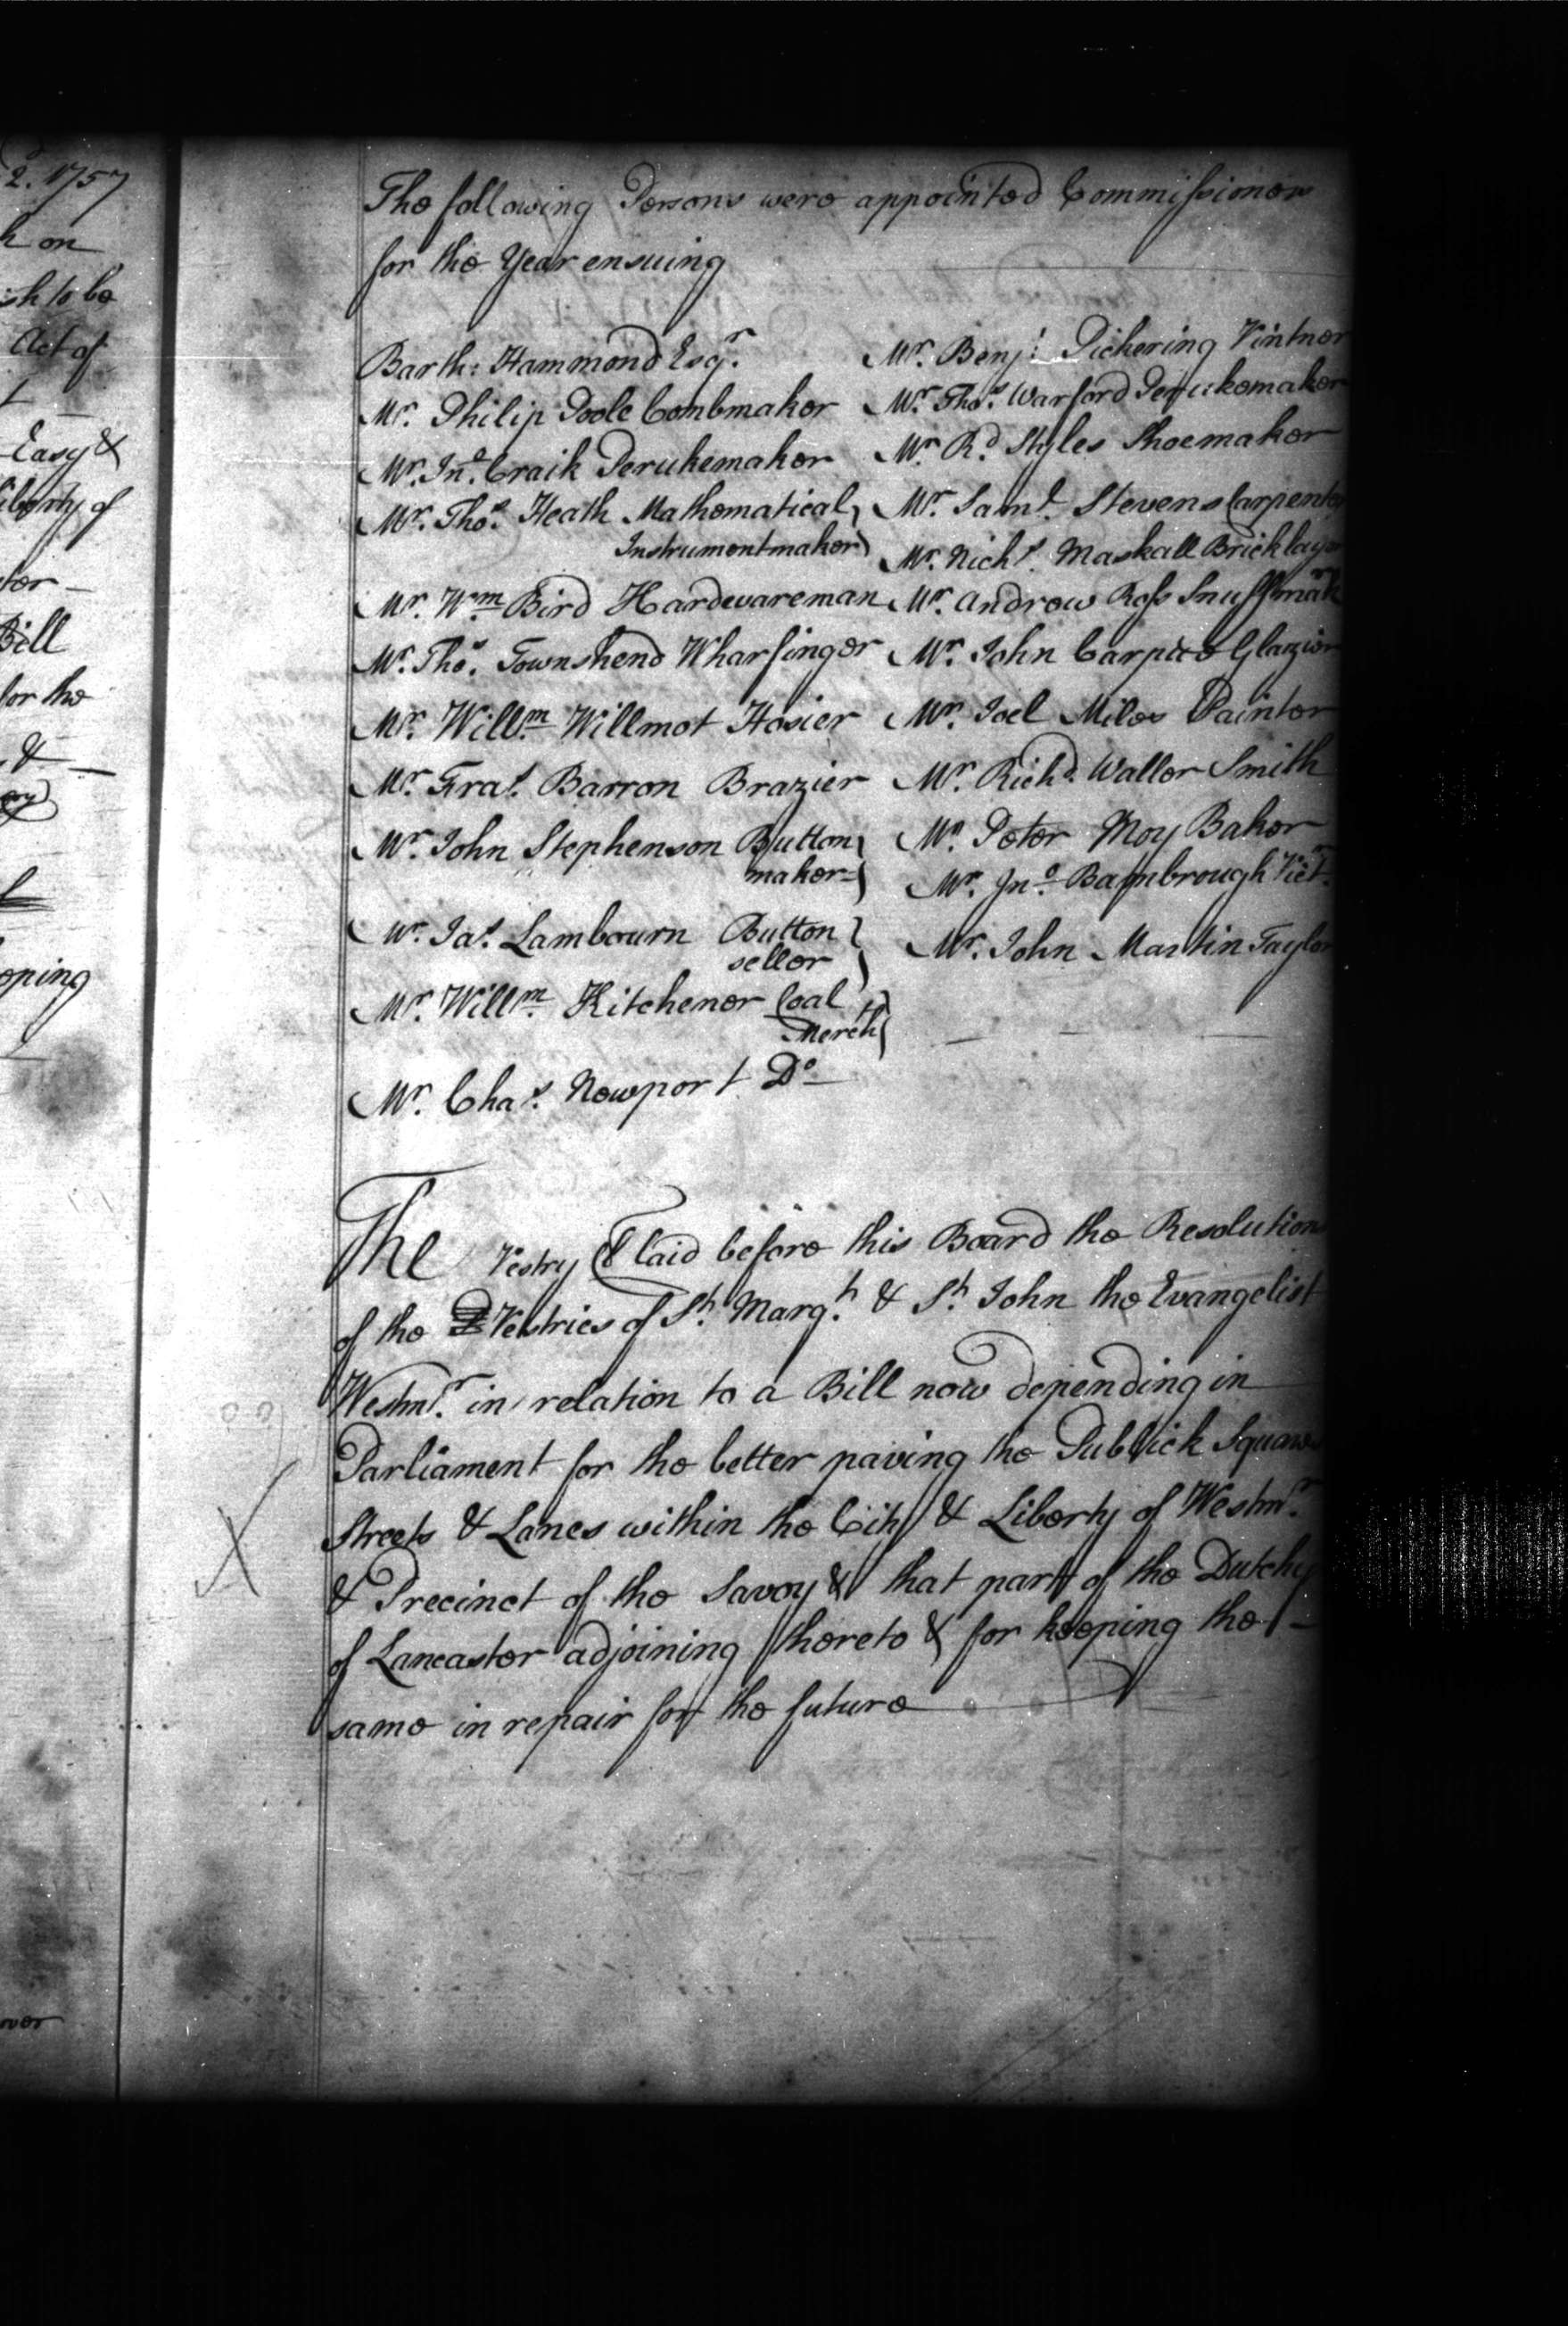 2. 1757
h on
sh to be
Act of
Easy &
Liberty of
ter -
Bill
for the
& -
eping
over
The following Persons were appointed Commissioners
for the Year ensuing
Barth: Hammond Esqr.
Mr. Philip Poole Combmaker
Mr. Jno. Craik Perukemaker
Mr. Thos. Heath Mathematical
Instrumentmaker
Mr. Wm. Bird Hardwareman
Mr. Thos. Townshend Wharfinger
Mr. Willm. Willmot Hosier
Mr. Fras. Barron Brazier
Mr. John Stephenson Button
maker
Mr. Jas. Lambourn Button
seller
Mr. Willm. Kitchener Coal
Mercht
Mr. Chas. Newport Do
Mr. Benj: Pickering Vintner
Mr. Thos. Warford Perukemaker
Mr. Rd. Styles Shoemaker
Mr. Saml. Stevens Carpenter
Mr. Nichs. Maskall Bricklayer
Mr. Andrew Ross Snuffmak
Mr. John Carpue Glazier
Mr. Joel Miles Painter
Mr. Richd. Waller Smith
Mr. Peter Moy Baker
Mr. Jno. Bambrough Vict.
Mr. John Martin Taylor
The Vestry Cl laid before this Board the Resolutions
of the Vestries of St. Margt. & St. John the Evangelist
Westmr. in relation to a Bill now depending in
Parliament for the better paving the Publick Squares
Streets & Lanes within the City & Liberty of Westmr.
& Precinct of the Savoy & that part of the Dutchy
of Lancaster adjoining thereto & for keeping the -
same in repair for the future
X